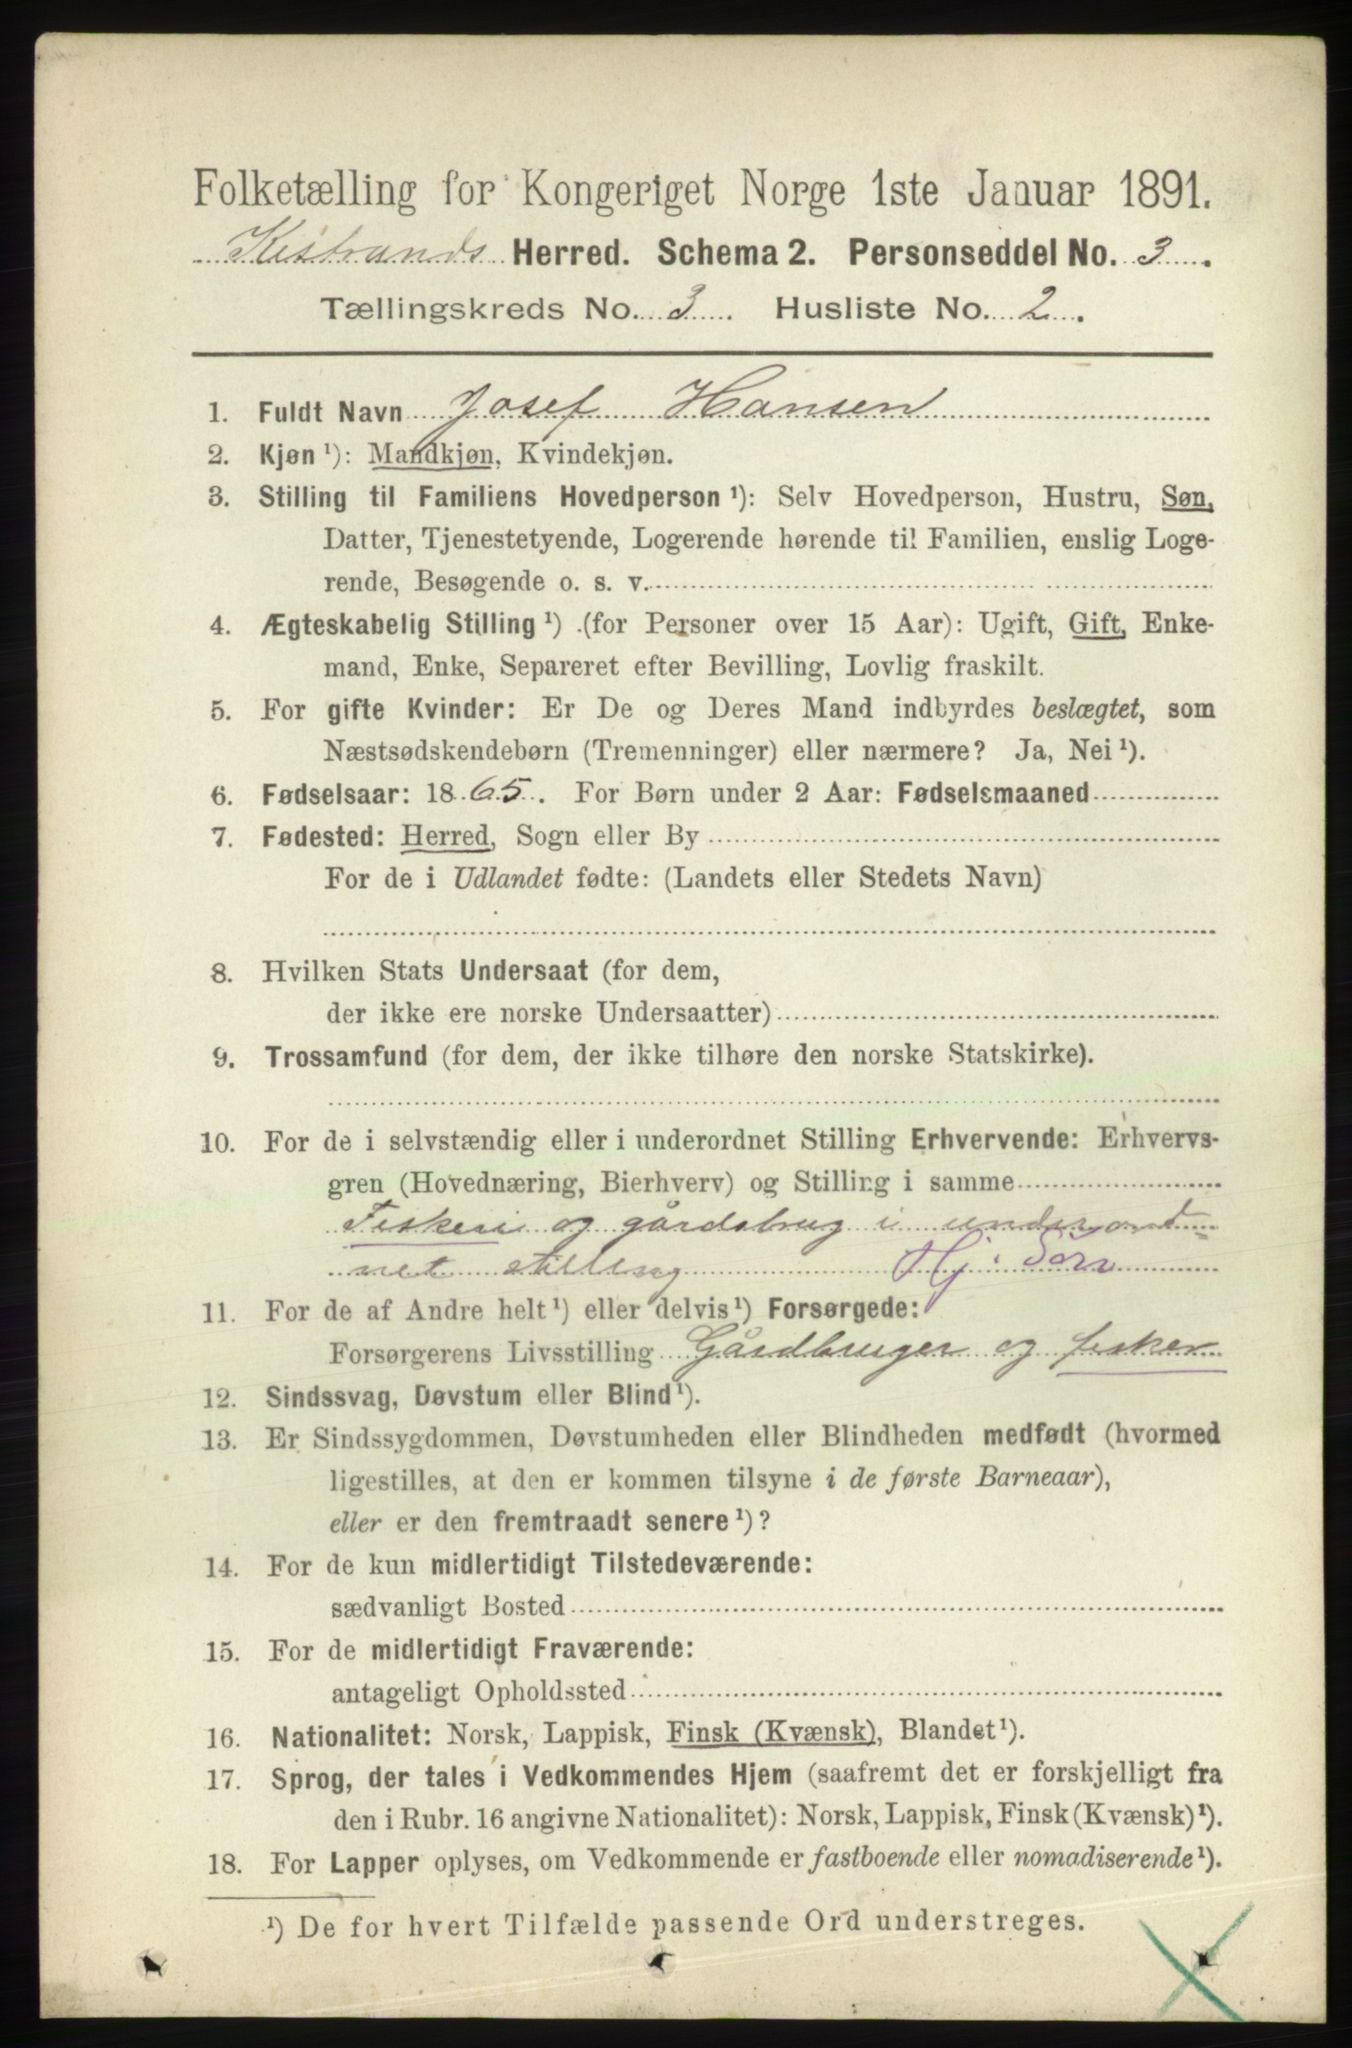 Folketælling for Kongeriget Norge 1ste Januar 1891.
Kistrands Herred. Schema 2. Personseddel No. 3.
Tællingskreds No. 3. Husliste No. 2.
1. Fuldt Navn Josef Hansen
2. Kjøn ¹): Mandkjøn, Kvindekjøn.
3. Stilling til Familiens Hovedperson ¹): Selv Hovedperson, Hustru, Søn,
Datter, Tjenestetyende, Logerende hørende til Familien, enslig Loge-
rende, Besøgende o. s. v.
4. Ægteskabelig Stilling ¹) (for Personer over 15 Aar): Ugift, Gift, Enke-
mand, Enke, Separeret efter Bevilling, Lovlig fraskilt.
5. For gifte Kvinder: Er De og Deres Mand indbyrdes beslægtet, som
Næstsødskendebørn (Tremenninger) eller nærmere? Ja, Nei ¹).
6. Fødselsaar: 1865. For Børn under 2 Aar: Fødselsmaaned
7. Fødested: Herred, Sogn eller By
For de i Udlandet fødte: (Landets eller Stedets Navn)
8. Hvilken Stats Undersaat (for dem,
der ikke ere norske Undersaatter)
9. Trossamfund (for dem, der ikke tilhøre den norske Statskirke).
10. For de i selvstændig eller i underordnet Stilling Erhvervende: Erhvervs-
gren (Hovednæring, Bierhverv) og Stilling i samme
Fiskeri og gårdsbrug i underord=
net stilling Hj. Søn
11. For de af Andre helt ¹) eller delvis ¹) Forsørgede:
Forsørgerens Livsstilling Gårdbruger og fisker
12. Sindssvag, Døvstum eller Blind ¹).
13. Er Sindssygdommen, Døvstumheden eller Blindheden medfødt (hvormed
ligestilles, at den er kommen tilsyne i de første Barneaar),
eller er den fremtraadt senere ¹)?
14. For de kun midlertidigt Tilstedeværende:
sædvanligt Bosted
15. For de midlertidigt Fraværende:
antageligt Opholdssted
16. Nationalitet: Norsk, Lappisk, Finsk (Kvænsk), Blandet ¹).
17. Sprog, der tales i Vedkommendes Hjem (saafremt det er forskjelligt fra
den i Rubr. 16 angivne Nationalitet): Norsk, Lappisk, Finsk (Kvænsk) ¹).
18. For Lapper oplyses, om Vedkommende er fastboende eller nomadiserende ¹).
¹) De for hvert Tilfælde passende Ord understreges.